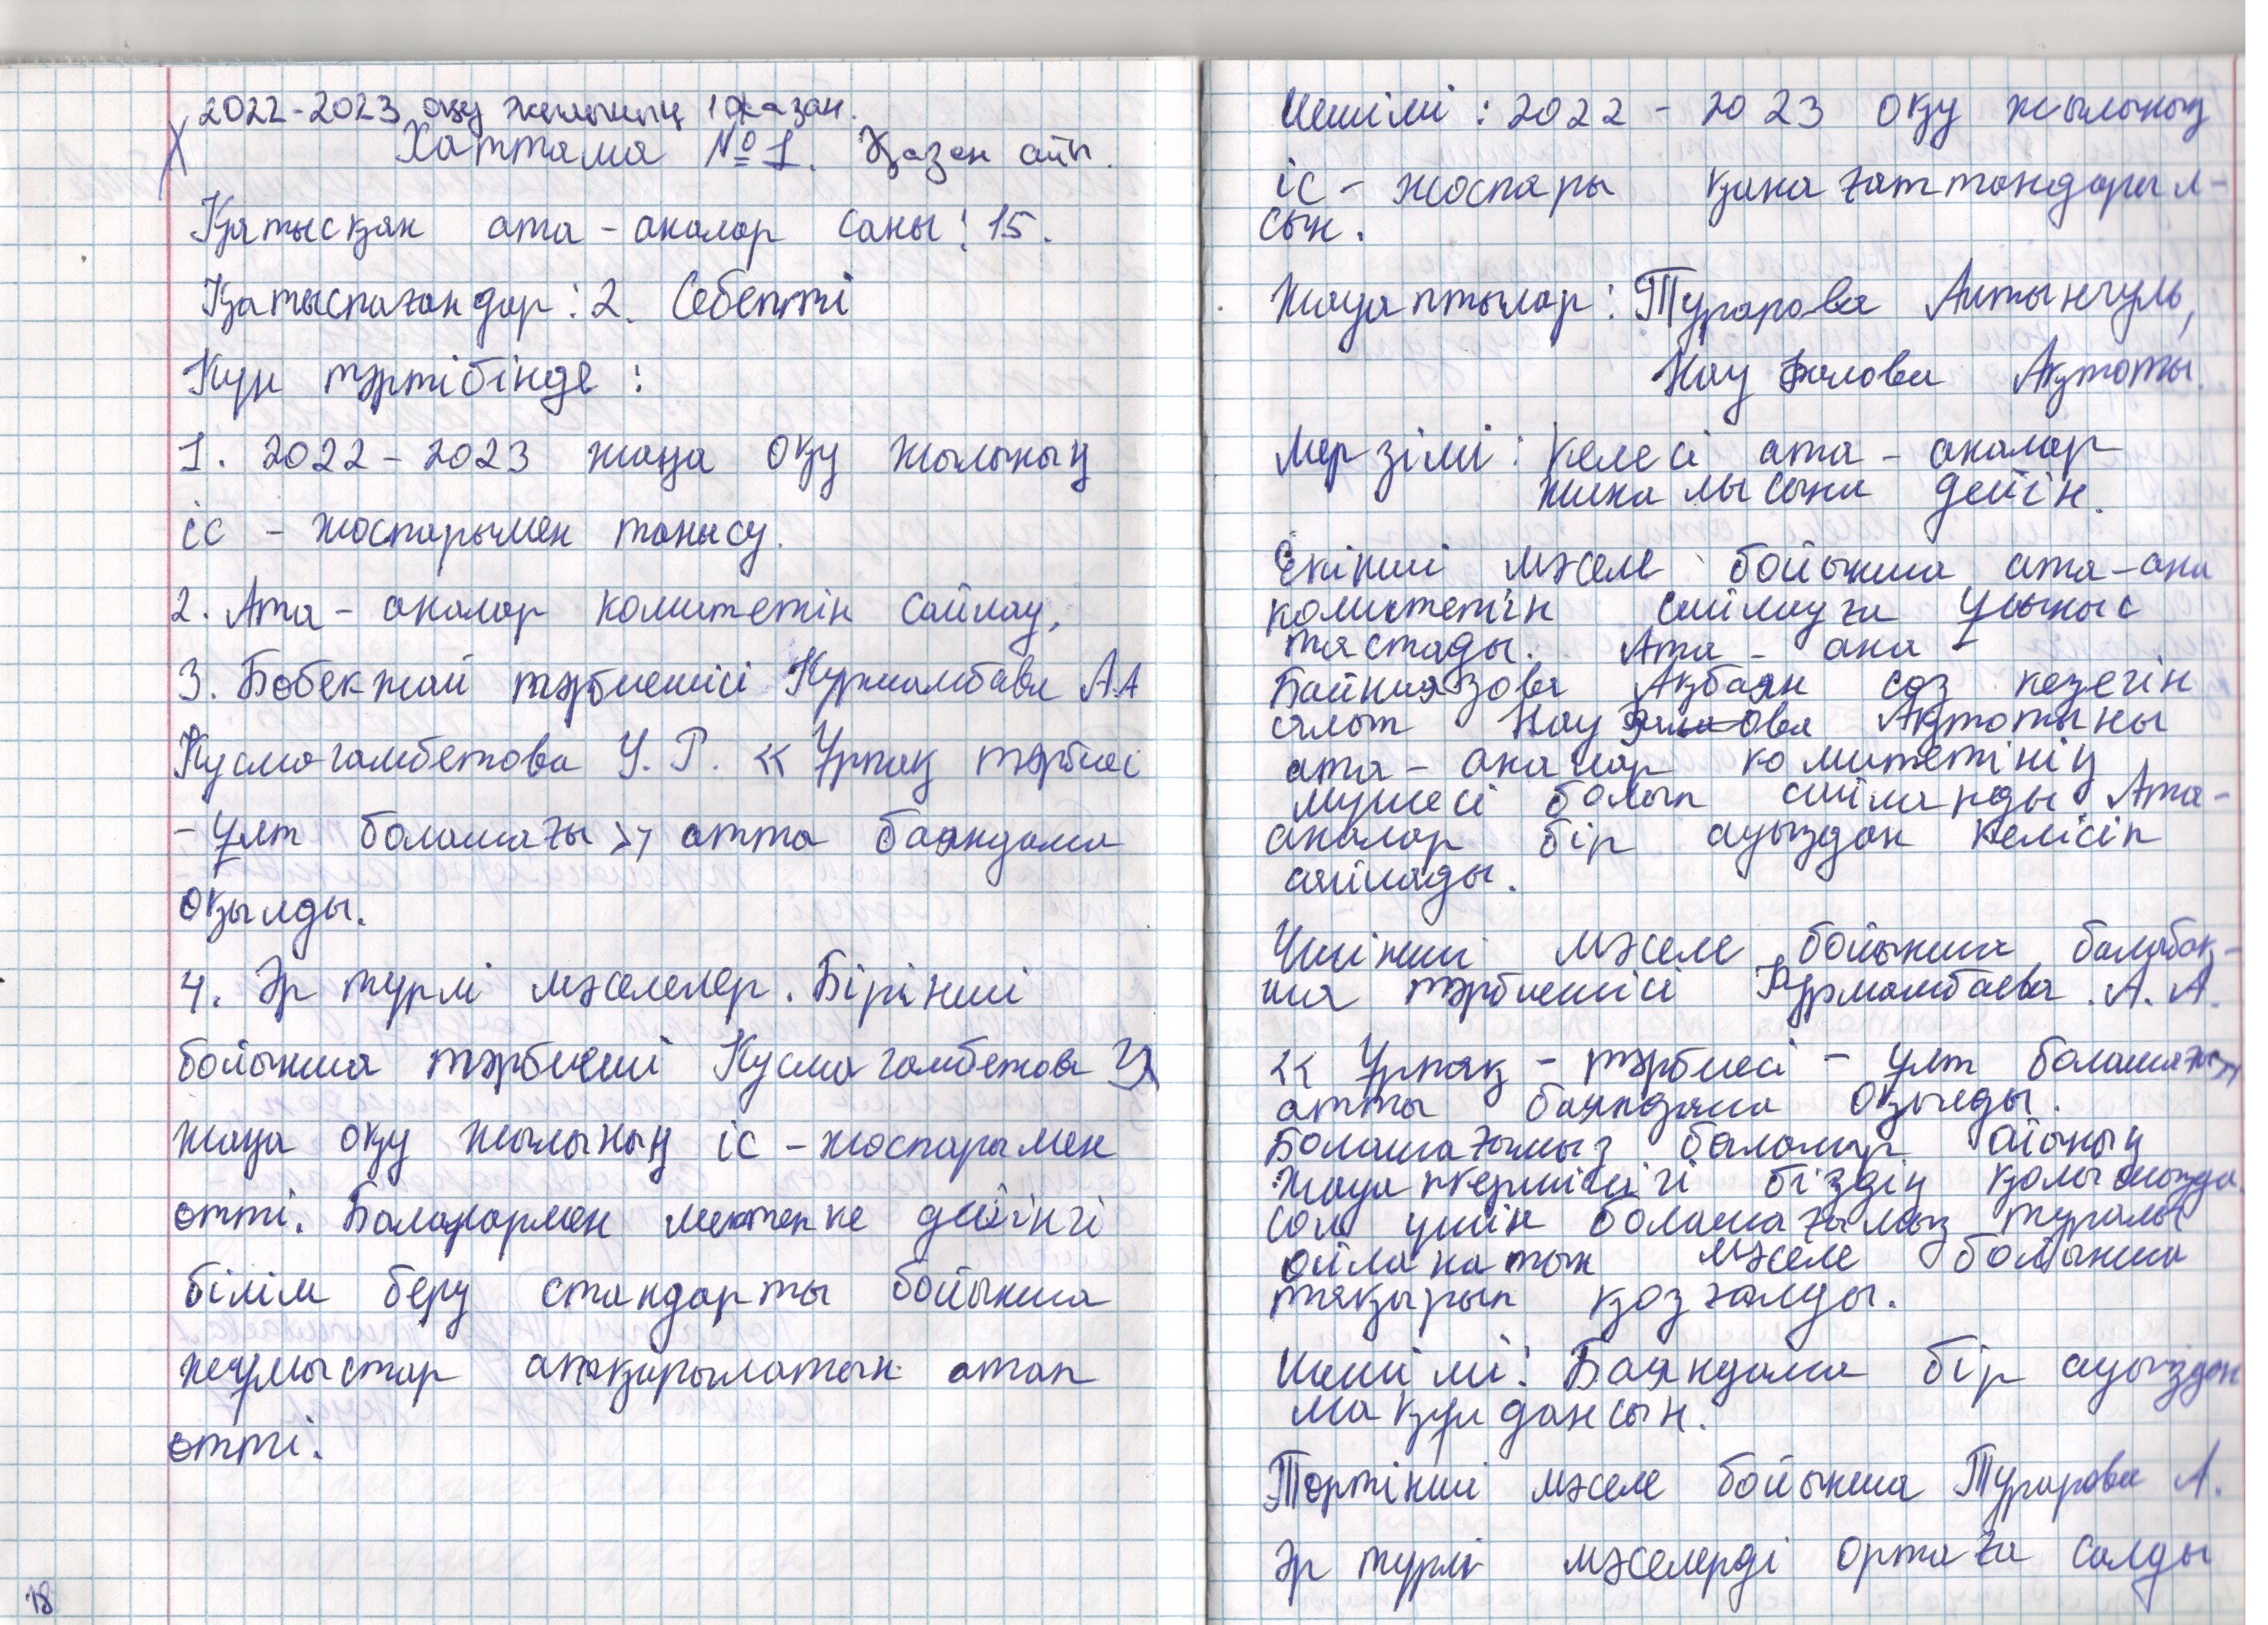 2022-2023 оқу жылының 10 қазан.
Хаттама №1. Қазан айы.
Қатысқан ата-аналар саны: 15.
Қатыспағандар: 2. Себепті
Күн тәртібінде:
1. 2022-2023 жаңа оқу жылының
іс - жоспарымен танысу.
2. Ата - аналар комитетін сайлау.
3. Бөбекжай тәрбиешісі Курмамбаева А.А
Кусмагамбетова У.Р. «Ұрпақ тәрбиесі
- ұлт болашағы» атта баяндама
оқылды.
4. Әр түрлі мәселелер. Бірінші
бойынша тәрбиеші Кусмагамбетова У
жаңа оқу жылының іс - жоспарымен
өтті. Балалармен мектепке дейінгі
білім беру стандарты бойынша
жұмыстар атқарылатын атап
өтті.
18
Шешімі: 2022 - 2023 оқу жылының
іс - жоспары қанағаттандарыл-
сын.
Жауаптылар: Турарова Алтынгуль,
Ақтоты.
Мерзімі: келесі ата - аналар
жиналысына дейін.
Екінші мәселе бойынша ата-ана
комитетін сайлауға ұсыныс
тастады. Ата - ана -
Байниязова Ақбаян сөз кезегін
алып Ақтотыны
ата - аналар комитетінің
мүшесі болып сайланды Ата-
аналар бір ауыздан келісіп
сайлады.
Үшінші мәселе бойынша балабақ-
ша тәрбиешісі Курмамбаева А.А.
«Ұрпақ - тәрбиесі - ұлт болашағы»
атты баяндама оқылды.
Болашағымыз балалар оның
жауапкершілігі біздің қолымызда
сол үшін болашағымыз туралы
ойланатын мәселе бойынша
тақырып қозғалды.
Шешімі: Баяндама бір ауыздан
мақұлдансын.
Төртінші мәселе бойынша Турарова А.
әр түрлі мәселерді ортаға салды